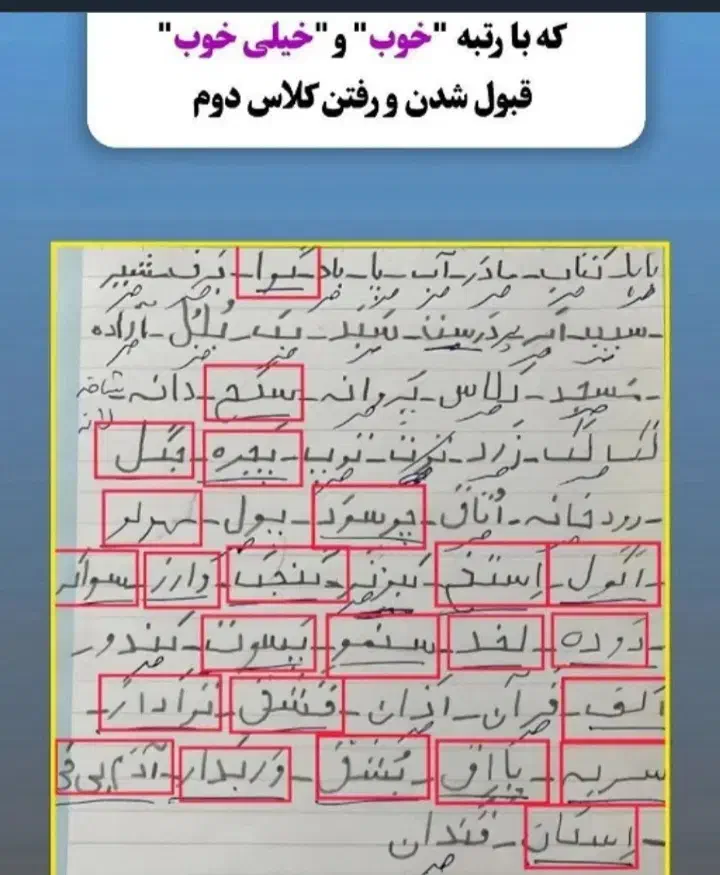 که با رتبه "خوب" و "خیلی خوب"
قبول شدن و رفتن کلاس دوم
بابا - کتاب - مادر - آب - با - باد - گوا - برف - شیر
سبب - ابر - پدر - سبد - یک - بلبل - آزاده
مسجد - کلاس - پروانه - سگم - دانه -
زرد - توپ - بجره - جگل
رودخانه - اتاق - چوسود - پول - مهرلو
اگول - استخ - گنجب - وارز - سواگر
دوده - لخد - سنمو - بیسوت - گندور
الف - قرآن - اذان - قشق - نرادار -
سریه - بااق - بشق - وربدار -
- استان - قندان